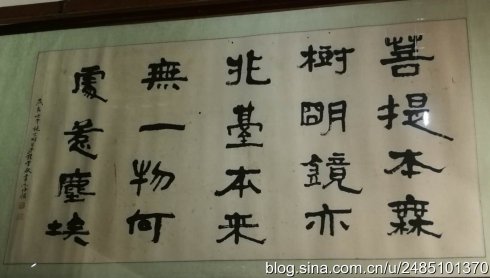 菩提本無
樹明鏡亦
非臺本来
無一物何
處惹塵埃
blog.sina.com.cn/u/2485101370